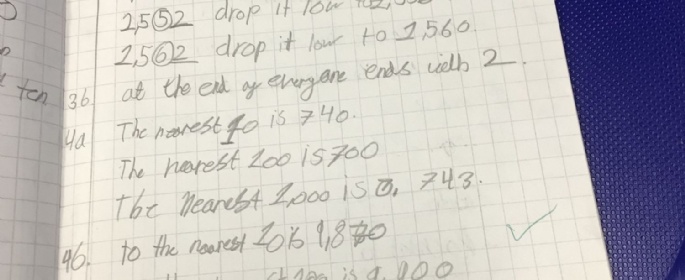 2,552 drop it low to
2,562 drop it low to 2,560.
ten
3b at the end of everyone ends with 2.
4a The nearest 10 is 740.
The nearest 100 is 700
The nearest 1,000 is 0. 743.
4b. to the nearest 10 is 9,870
is 9,900